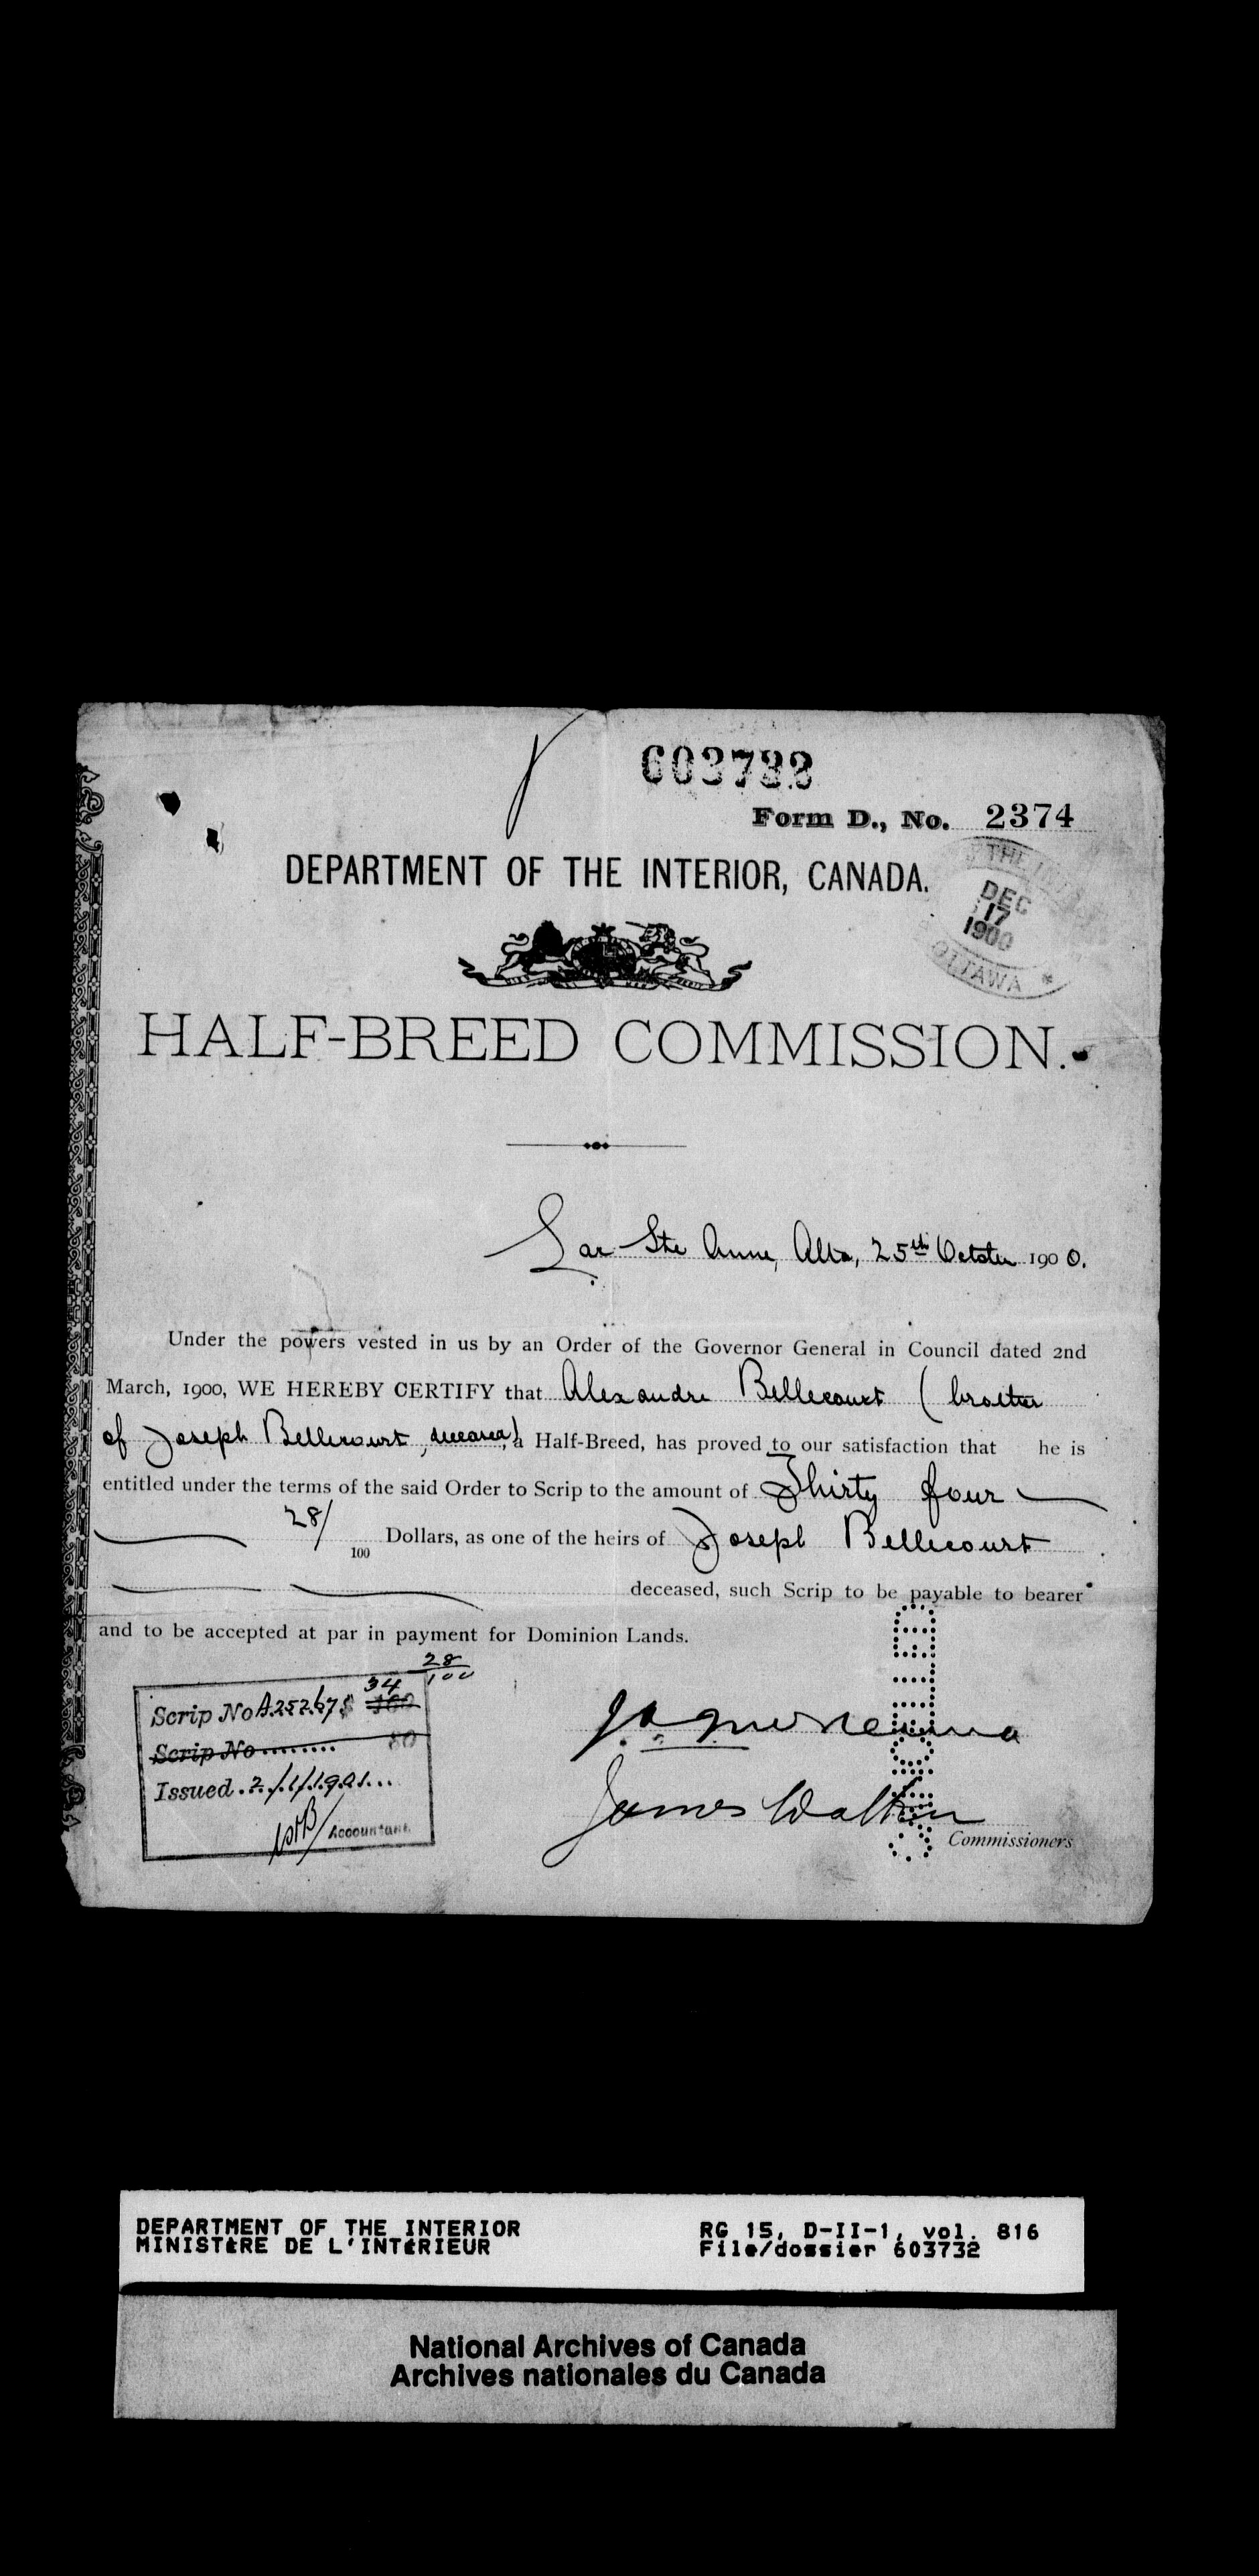 603732
Form D., No. 2374
DEPARTMENT OF THE INTERIOR, CANADA.
THE
DEC
17
1900
OTTAWA *
HALF-BREED COMMISSION.
Lac Ste Anne, Alta, 25th October 1900.
Under the powers vested in us by an Order of the Governor General in Council dated 2nd
March, 1900, WE HEREBY CERTIFY that Alexandre Bellecourt (brother
of Joseph Bellecourt, deceased) a Half-Breed, has proved to our satisfaction that he is
entitled under the terms of the said Order to Scrip to the amount of Thirty four
28/100 Dollars, as one of the heirs of Joseph Bellecourt
deceased, such Scrip to be payable to bearer
and to be accepted at par in payment for Dominion Lands.
28/100
Scrip No A25267 $ 34 160
Scrip No ........ 80
Issued . 2/1/1901...
Accountant.
J. A. McKenna
James Walker
Commissioners
DEPARTMENT OF THE INTERIOR
MINISTÈRE DE L'INTÉRIEUR
RG 15, D-II-1, vol. 816
File/dossier 603732
National Archives of Canada
Archives nationales du Canada